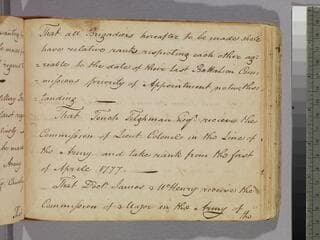 That all Brigadiers hereafter to be made shall
have relative rank respecting each other ag-
-reeable to the date of their last Battalion Com-
-missions priority of Appointment notwiths
-tanding —
That Tench Tilghman Esqr. receive the
Commission of Lieut. Colonel in the Line of
the Army and take rank from the first
of Aprile 1777. —
That Doctr. James McHenry receive the
Commission of Major in the Army of
the